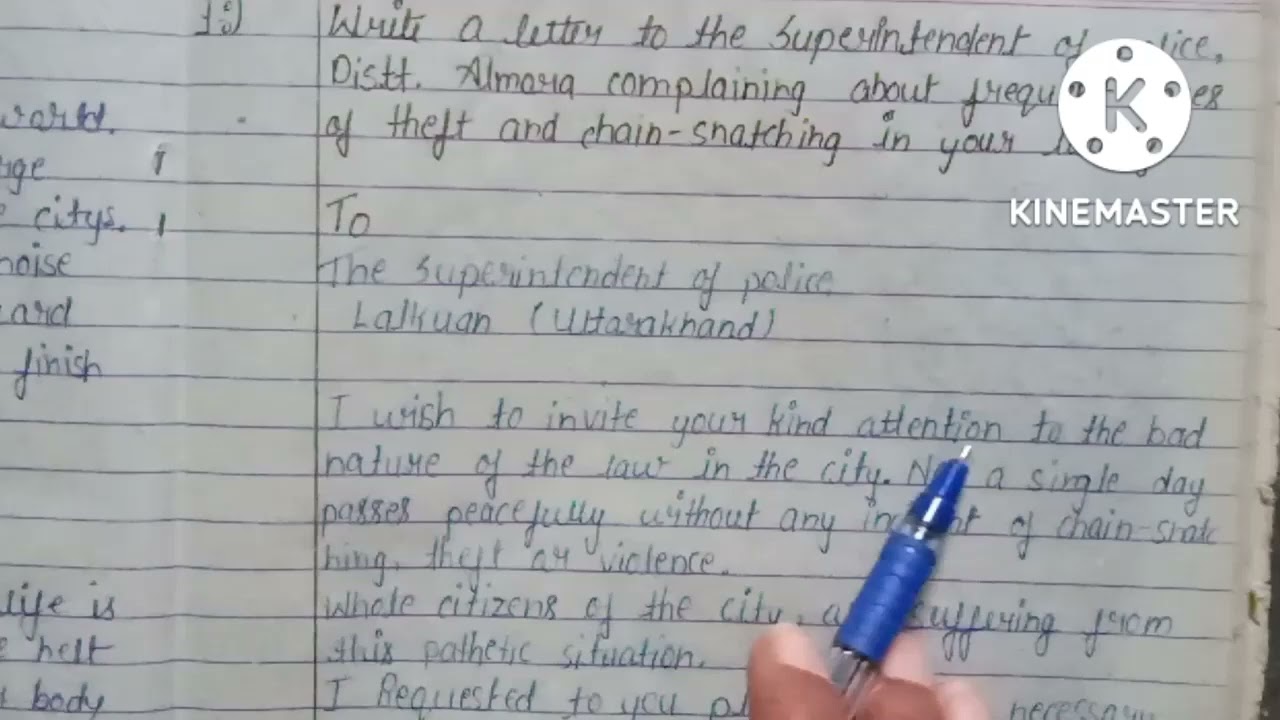 1:)
Write a letter to the Superintendent of
Distt. Almora complaining about
of theft and chain-snatching in your
K
KINEMASTER
To
The Superintendent of police
Lalkuan (Uttarakhand)
I wish to invite your kind attention to the bad
nature of the law in the city. a single day
passes peacefully without any of chain-snatc
hing, theft or violence.
Whole citizens of the city, suffering from
this pathetic situation.
I Requested to you necessary
world.
citys.
noise
finish
life is
body